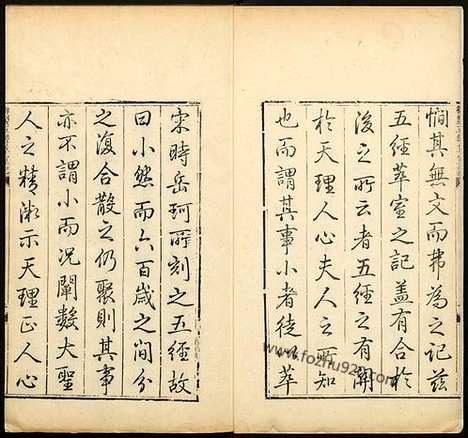 憫其無文而弗為之記茲
五經萃室之記蓋有合於
後之所云者五經之有關
於天理人心夫人之所知
也而謂其事小者徒以萃
宋時岳珂所刻之五經故
曰小然而六百歲之間分
之復合散之仍聚則其事
亦不謂小而況闡數大聖
人之精微示天理正人心
www.fozhu920.com